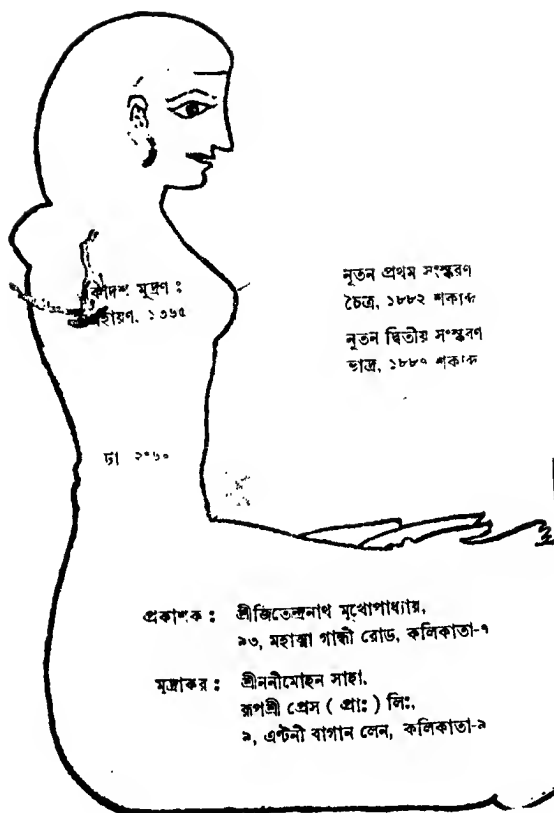 মুদ্রণ :
১৩৬৫
নূতন প্রথম সংস্করণ
চৈত্র, ১৮৮২ শকাব্দ
নূতন দ্বিতীয় সংস্করণ
ভাদ্র, ১৮৮৭ শকাব্দ
প্রকাশক : শ্রীজিতেন্দ্রনাথ মুখোপাধ্যায়,
৯৩, মহাত্মা গান্ধী রোড, কলিকাতা-৭
মুদ্রাকর : শ্রীননীমোহন সাহা,
রূপশ্রী প্রেস ( প্রাঃ ) লিঃ,
৯, এন্টনী বাগান লেন, কলিকাতা-৯